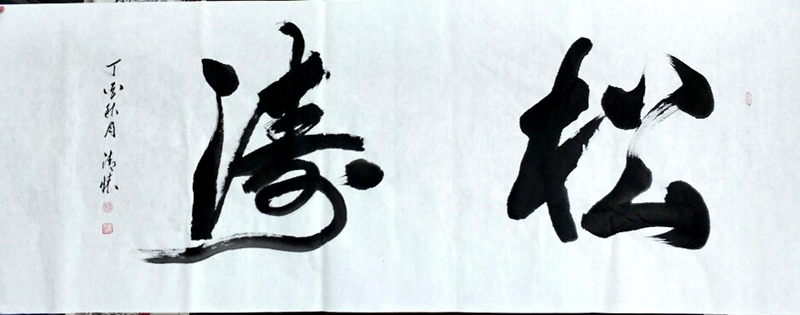 松涛
丁酉秋月